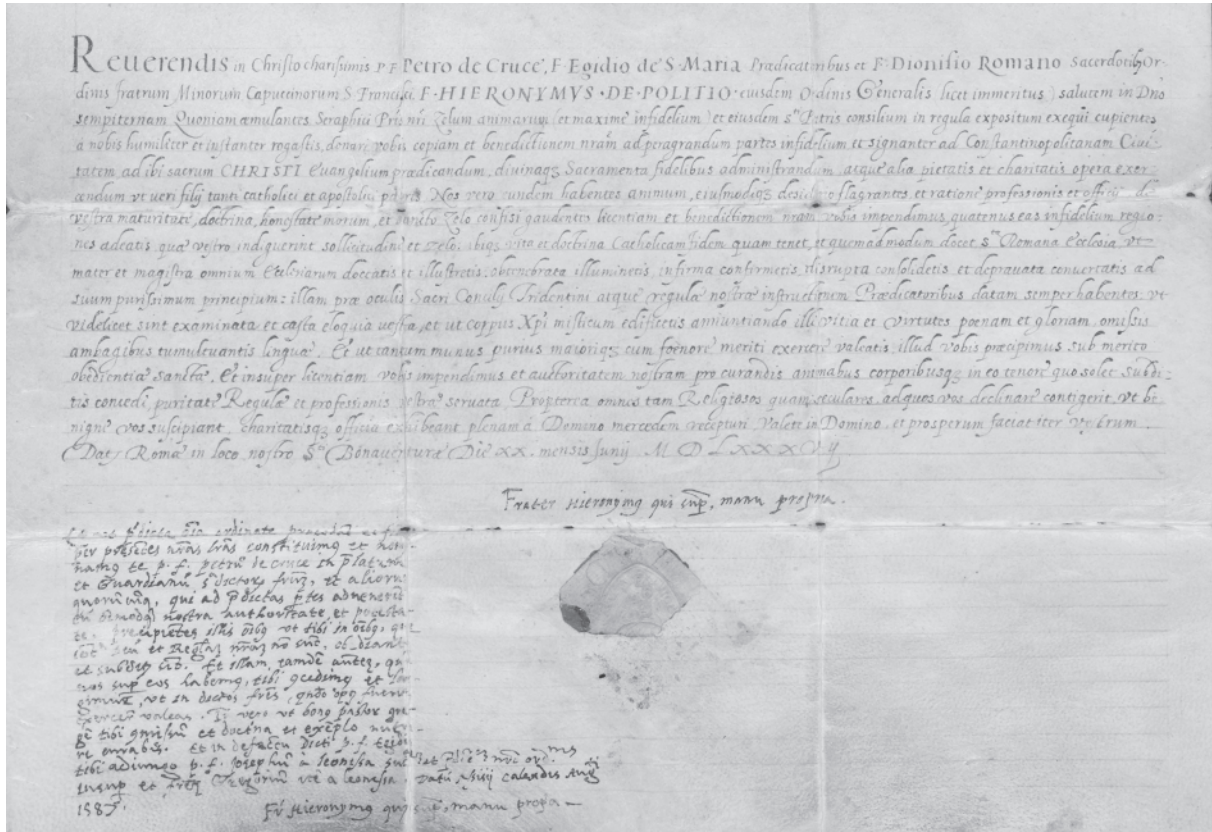 Reuerendis in Christo charissimis P F Petro de Cruce, F Egidio de S Maria Prædicatoribus et F Dionisio Romano Sacerdotibꝫ Or-
dinis fratrum Minorum Capuccinorum S Francisci F·HIERONYMVS·DE·POLITIO·eiusdem Ordinis Generalis licet immeritus) salutem in Dno
sempiternam Quoniam æmulantes Seraphici Pris nri Zelum animarum (et maxime infidelium) et eiusdem Sti Patris consilium in regula expositum exequi cupientes
a nobis humiliter et instanter rogastis, donari vobis copiam et benedictionem nram ad peragrandum partes infidelium et signanter ad Constantinopolitanam Ciui-
tatem ad ibi sacrum CHRISTI Euangelium prædicandum, diuinaqꝫ Sacramenta fidelibus administrandum, atque alia pietatis et charitatis opera exer-
cendum ut veri filij tanti catholici et apostolici patris Nos vero eundem habentes animum, eiusmodiqꝫ desiderio flagrantes, et ratione professionis et officij, de
vestra maturitate, doctrina, honestate morum, et sancto zelo confisi gaudentes licentiam et benedictionem nram vobis impendimus, quatenus eas infidelium regio-
nes adeatis, quæ vestro indiguerint sollicitudini et Zelo, ibiqꝫ vita et doctrina Catholicam fidem quam tenet, et quemadmodum docet Sta Romana Ecclesia, vt
mater et magistra omnium Ecclesiarum doceatis et illustretis, obtenebrata illuminetis, infirma confirmetis, disrupta consolidetis et deprauata conuertatis ad
suum purissimum principium: illam præ oculis Sacri Concilij Tridentini atque regulæ nostræ instructionem Prædicatoribus datam semper habentes, vt
videlicet sint examinata et casta eloquia uestra, et ut corpus Xpi misticum edificetis annuntiando illi vitia et virtutes pœnam et gloriam, omissis
ambagibus tumultuantis linguæ. Et ut tantum munus purius maioriqꝫ cum fœnore meriti exercere valeatis, illud vobis præcipimus sub merito
obedientiæ sanctæ, Et insuper licentiam vobis impendimus et auctoritatem nostram pro curandis animabus corporibusqꝫ in eo tenore quo solet subdi-
tis concedi, puritate Regulæ et professionis vestræ seruata, Propterea omnes tam Religiosos quam seculares, ad quos vos declinare contigerit, vt be-
nigne vos suscipiant, charitatisqꝫ officia exhibeant plenam a Domino mercedem recepturi. Valete in Domino, et prosperum faciat iter vestrum.
Dat Romæ in loco nostro Sti Bonauenturæ Die XX. mensis Junij M D L X X X V ij
Frater Hieronymꝰ qui supᵃ, manu propria.
ordinate
per presẽtes nr̃as lr̃as constituimꝰ et nomi-
namꝰ te p. f. petrũ de cruce in
et Guardianũ fr̃ũ, et aliorũ
qui ad p̃dictas p̃tes
nostra authoritate et potesta-
te. precipiẽtes illis vt tibi in
et Reglã nr̃ã nõ sũt, obediant
et Et illam,
eos habemꝰ, tibi
vt in dictos fr̃es,
exercere valeas. Tu vero vt bonꝰ pastor
tibi et doctrina et exẽplo
curabis. et in defectu dicti p. f. Egidij
tibi adiungo p. f. Josephũ à leonissa
insup et à leonissa. Calendis Augti
1587.
Fr Hieronymꝰ qui supᵃ, manu propa